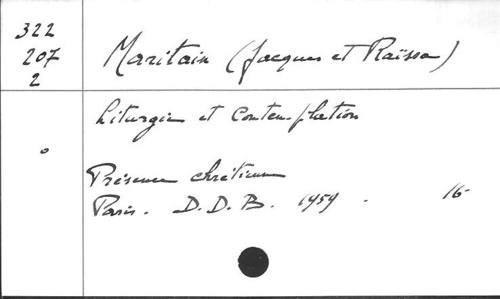 322
207
2
Maritain (Jacques et Raïssa)
Liturgie et Contemplation
°
Présence chrétienne
Paris. D.D.B. 1959. 16